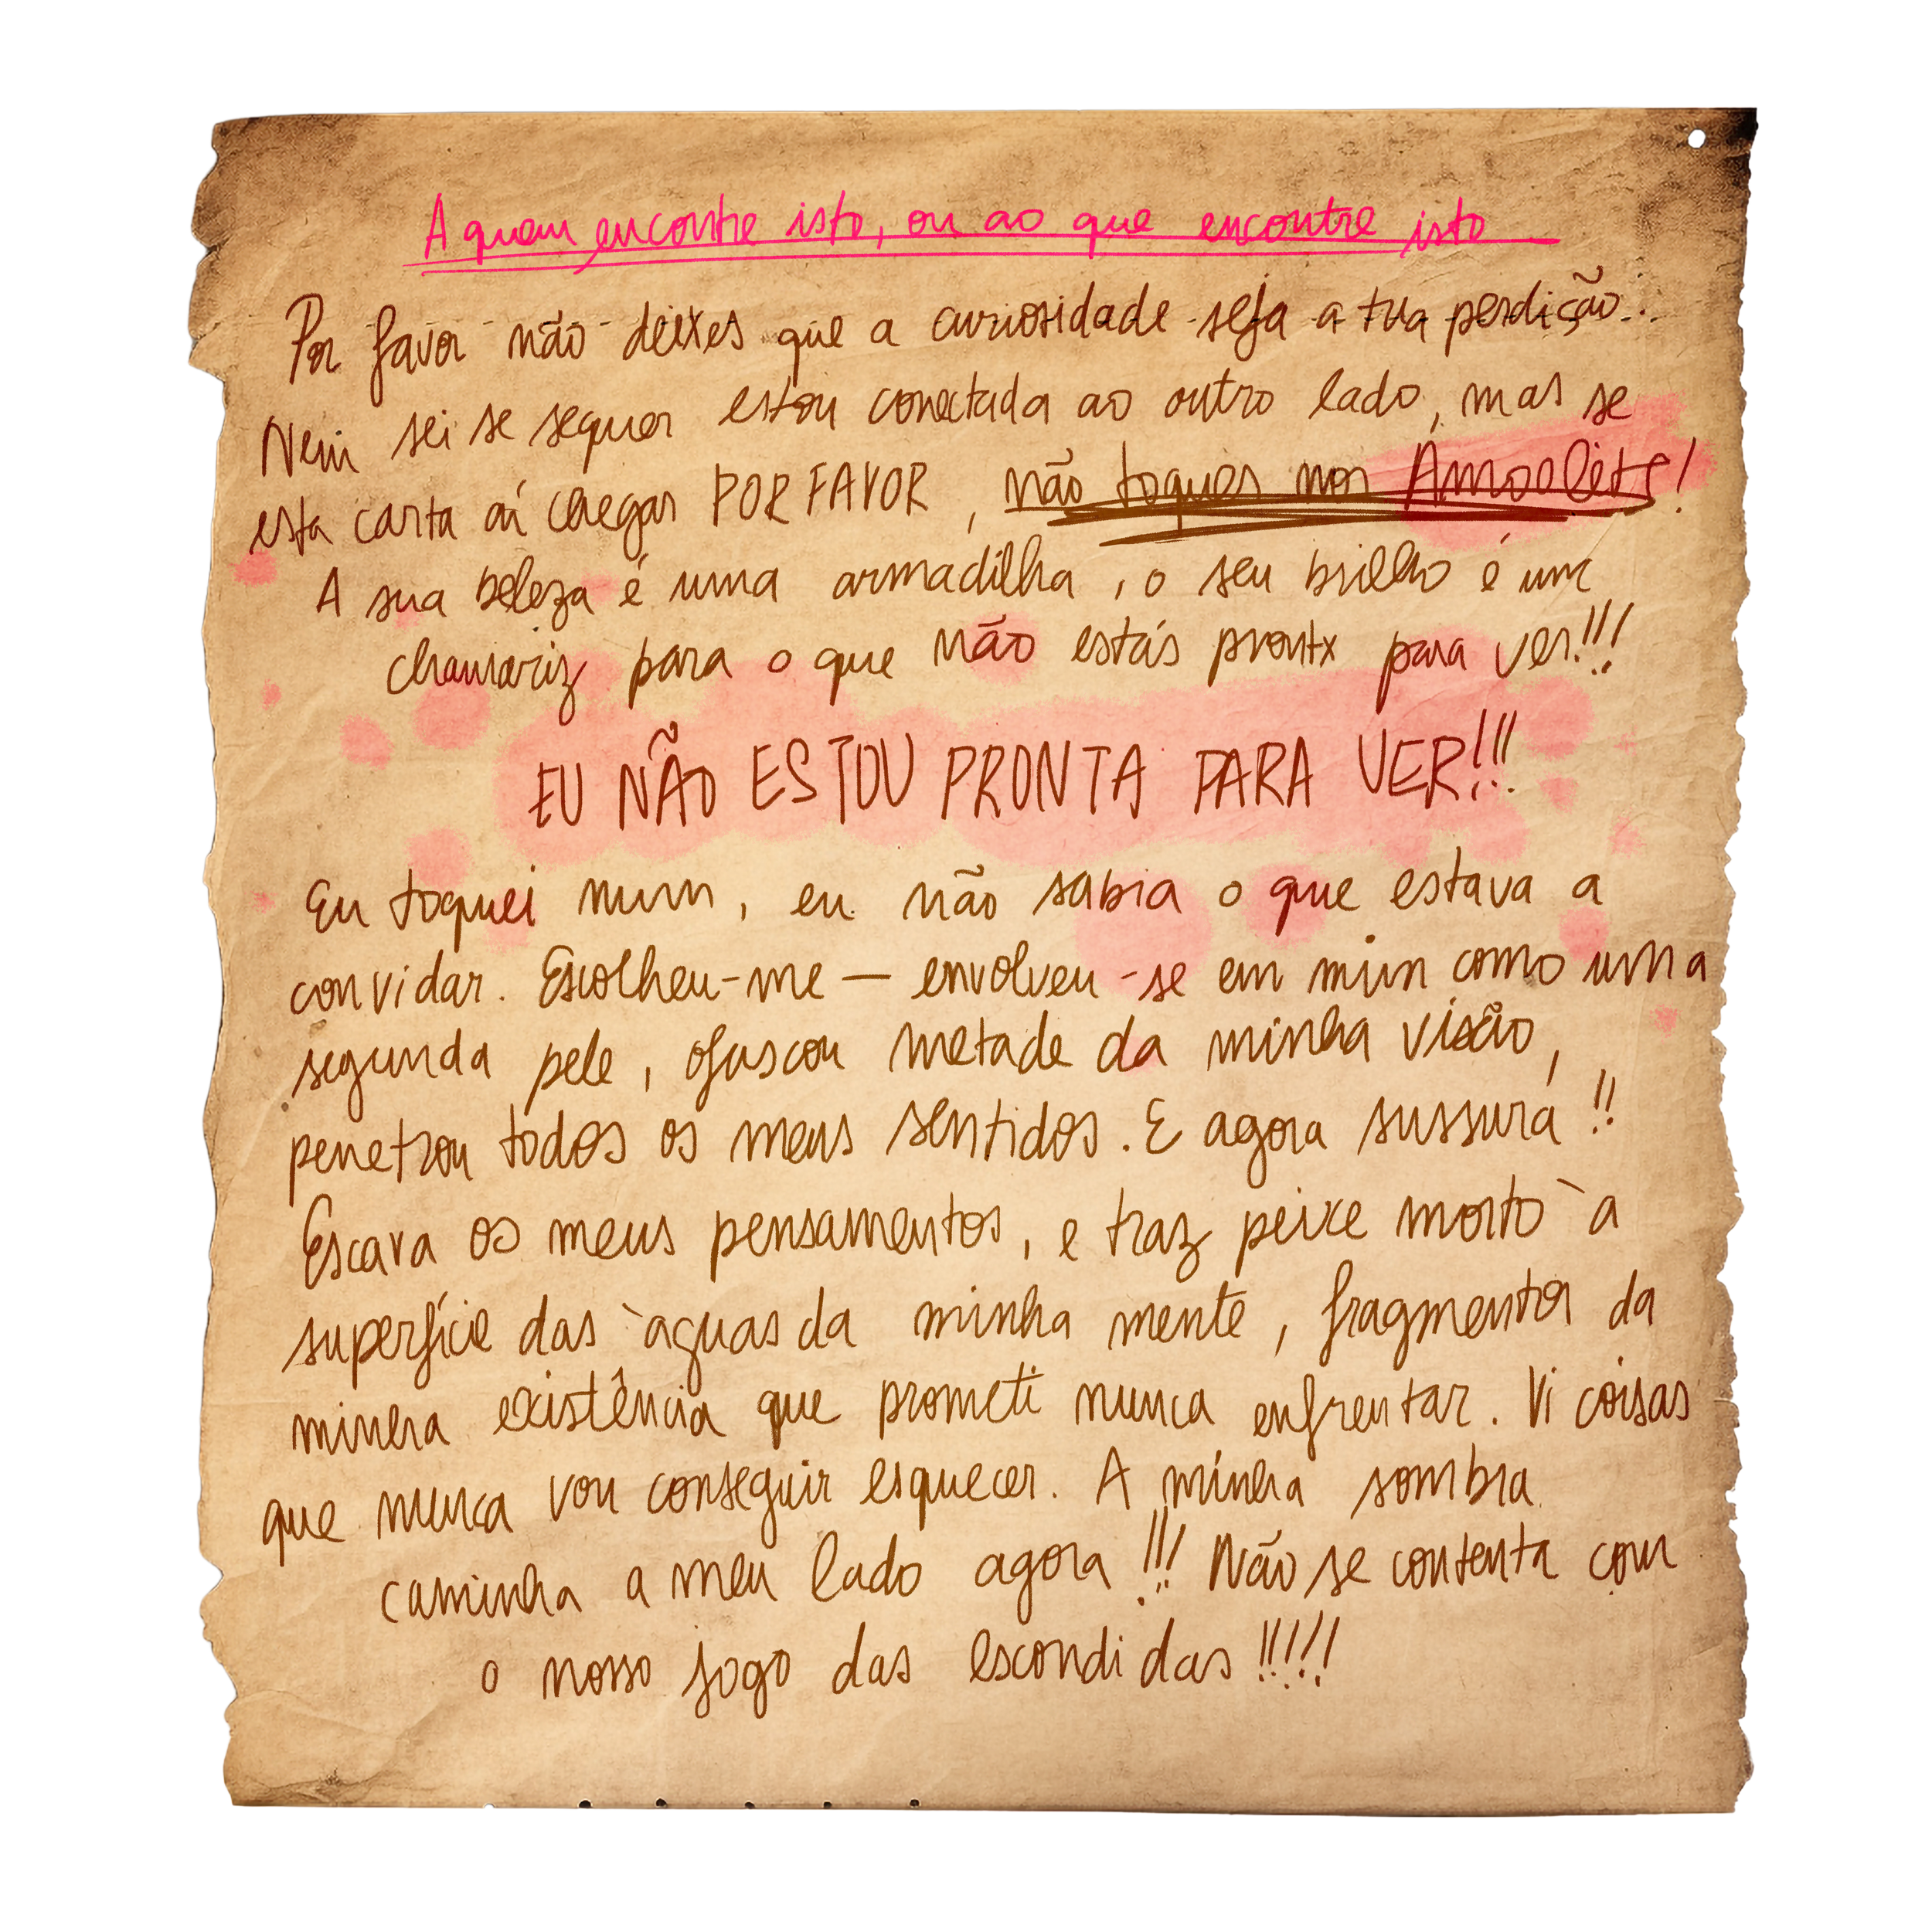 A quem encontre isto, ou ao que encontre isto
Por favor não deixes que a curiosidade seja a tua perdição...
Nem sei se sequer estou conectada ao outro lado, mas se
esta carta aí chegar POR FAVOR, não toques nos Amoolets!
A sua beleza é uma armadilha, o seu brilho é um
chamariz para o que não estás prontx para ver!!!
EU NÃO ESTOU PRONTA PARA VER!!!
Eu toquei num, eu não sabia o que estava a
convidar. Escolheu-me — envolveu-se em mim como uma
segunda pele, ofuscou metade da minha visão,
penetrou todos os meus sentidos. E agora sussura!!
Escava os meus pensamentos, e traz peixe morto à
superfície das àguas da minha mente, fragmentos da
minha existência que prometi nunca enfrentar. Vi coisas
que nunca vou conseguir esquecer. A minha sombra
caminha a meu lado agora!!! Não se contenta com
o nosso jogo das escondidas!!!!!